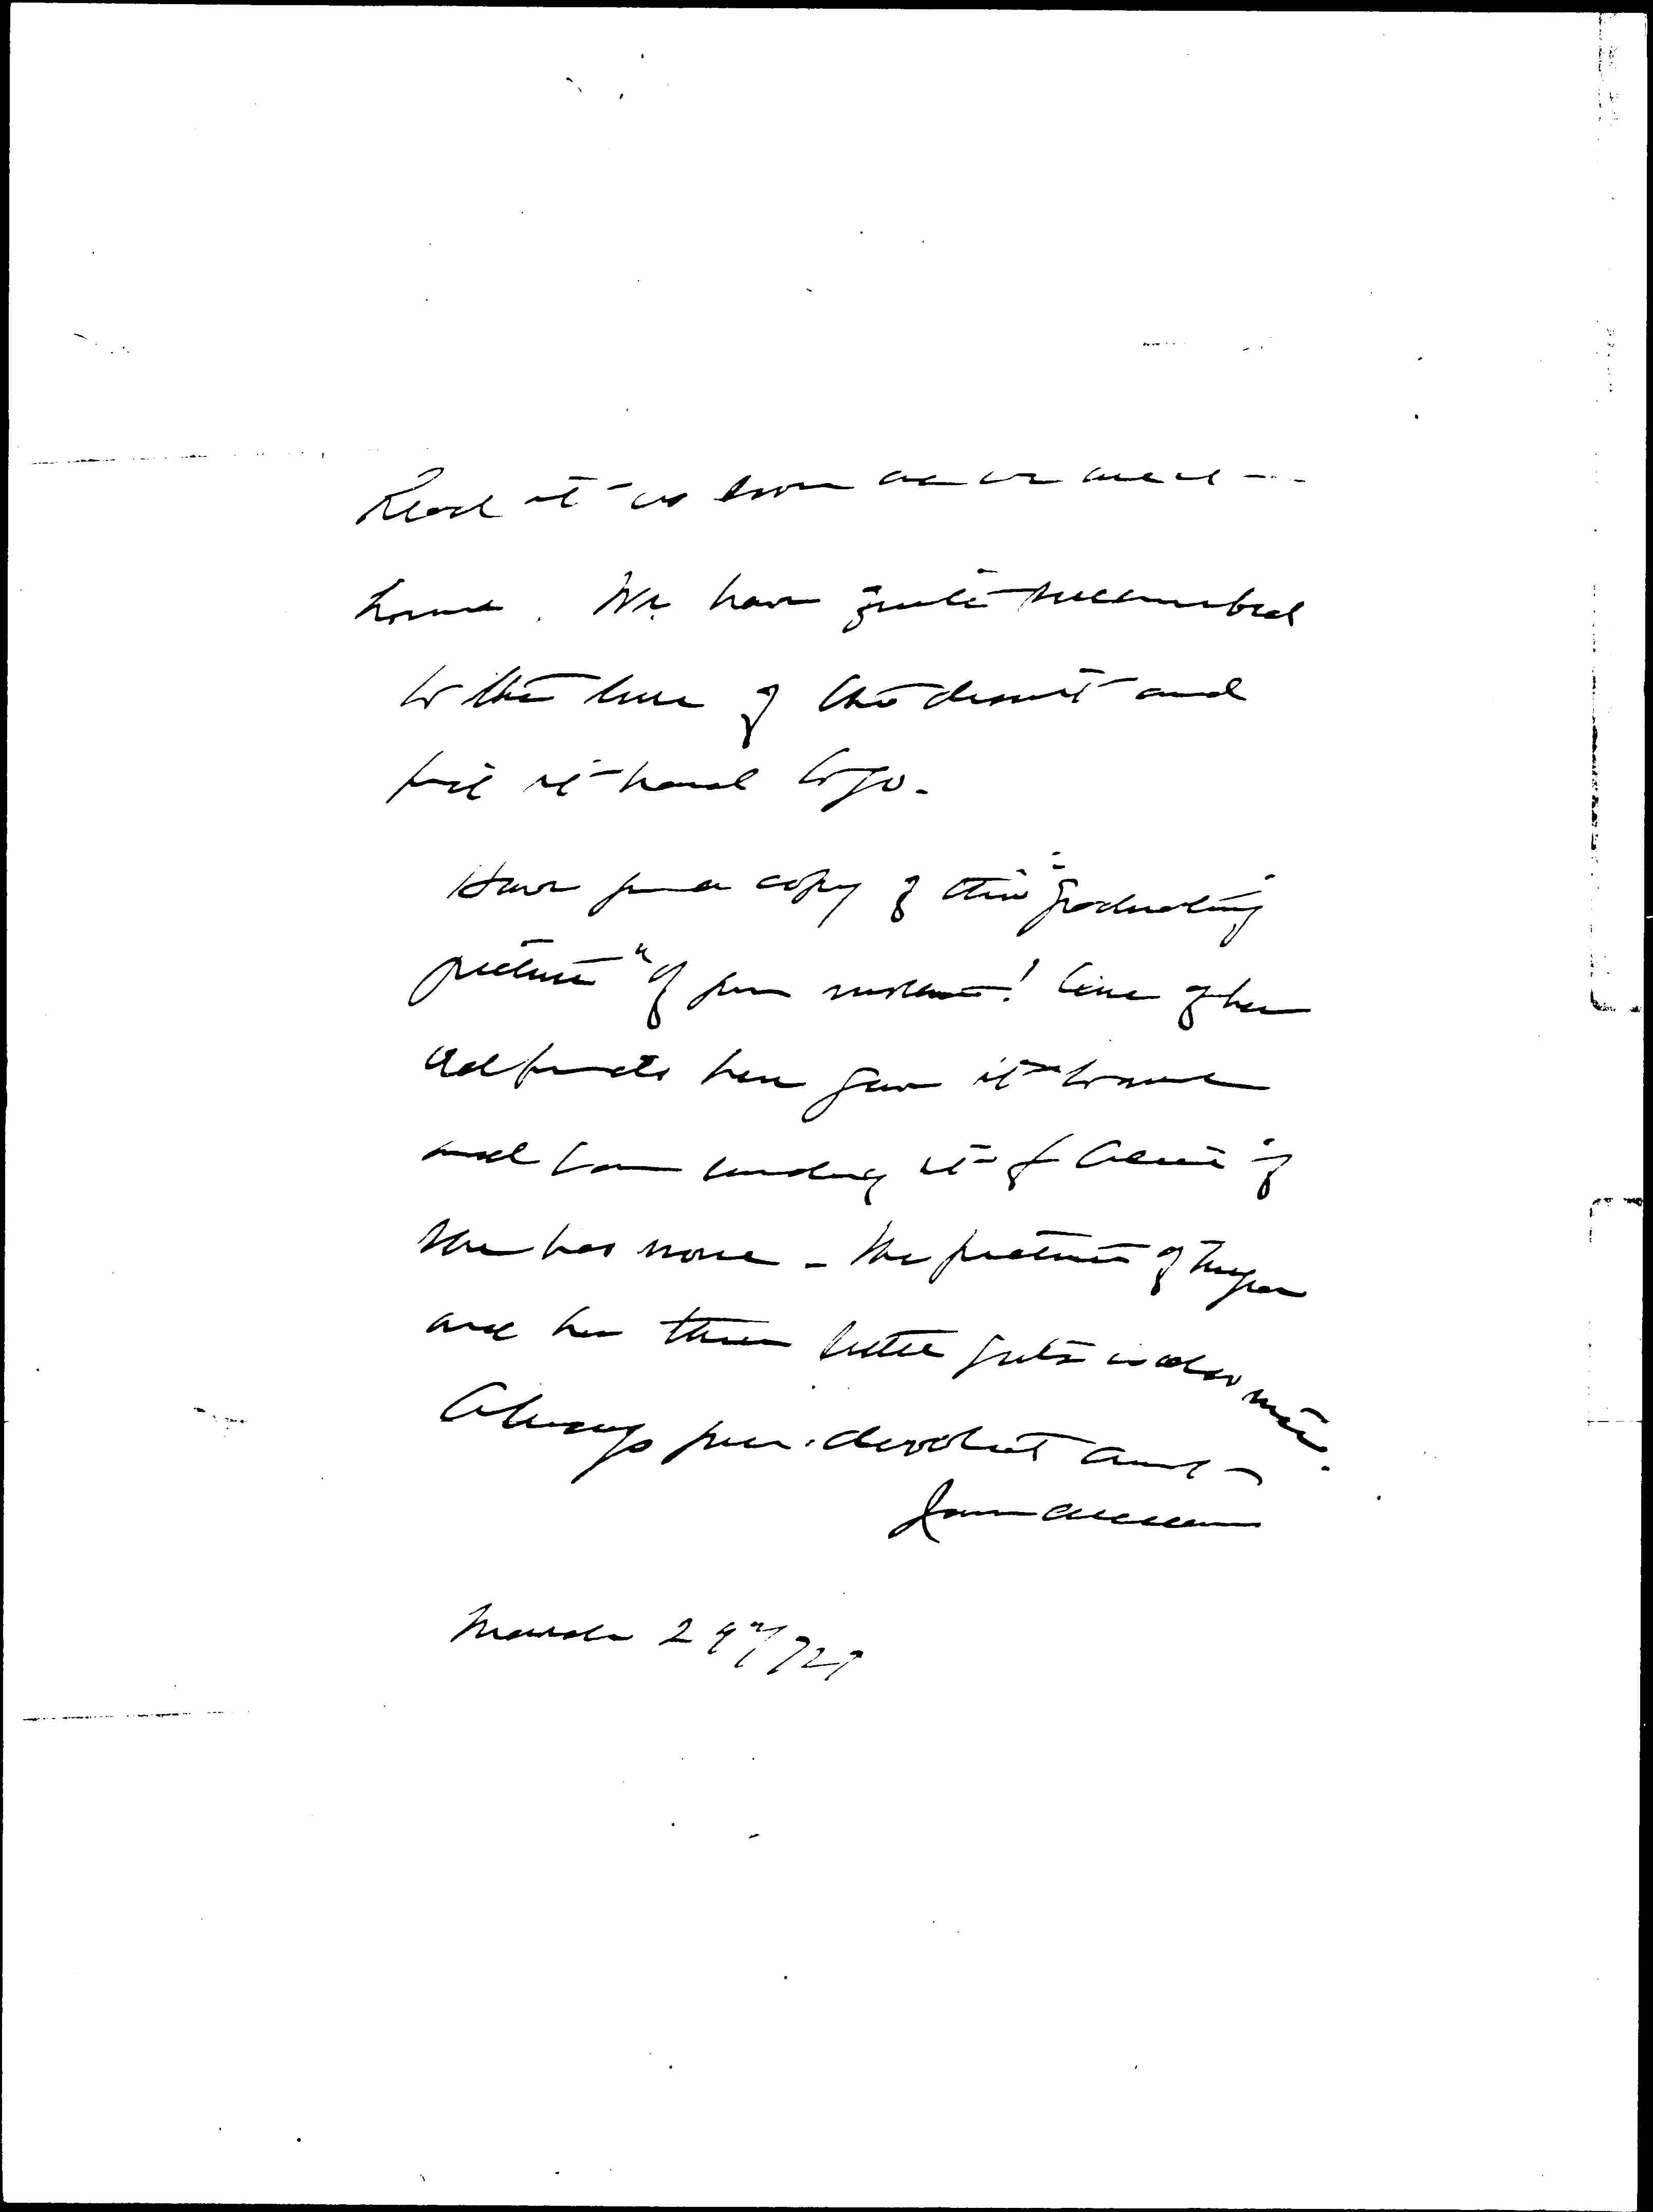 Read it as soon as we are
home. We have quite succumbed
to the lure of the desert and
find it hard to go.
Have you a copy of this "graduating
picture" of your mother! One of her
old friends here gave it to me
and I am sending it to if
she has none - The picture of
and her three little girls is also nice.
Always your devoted aunt -
March 29th/29